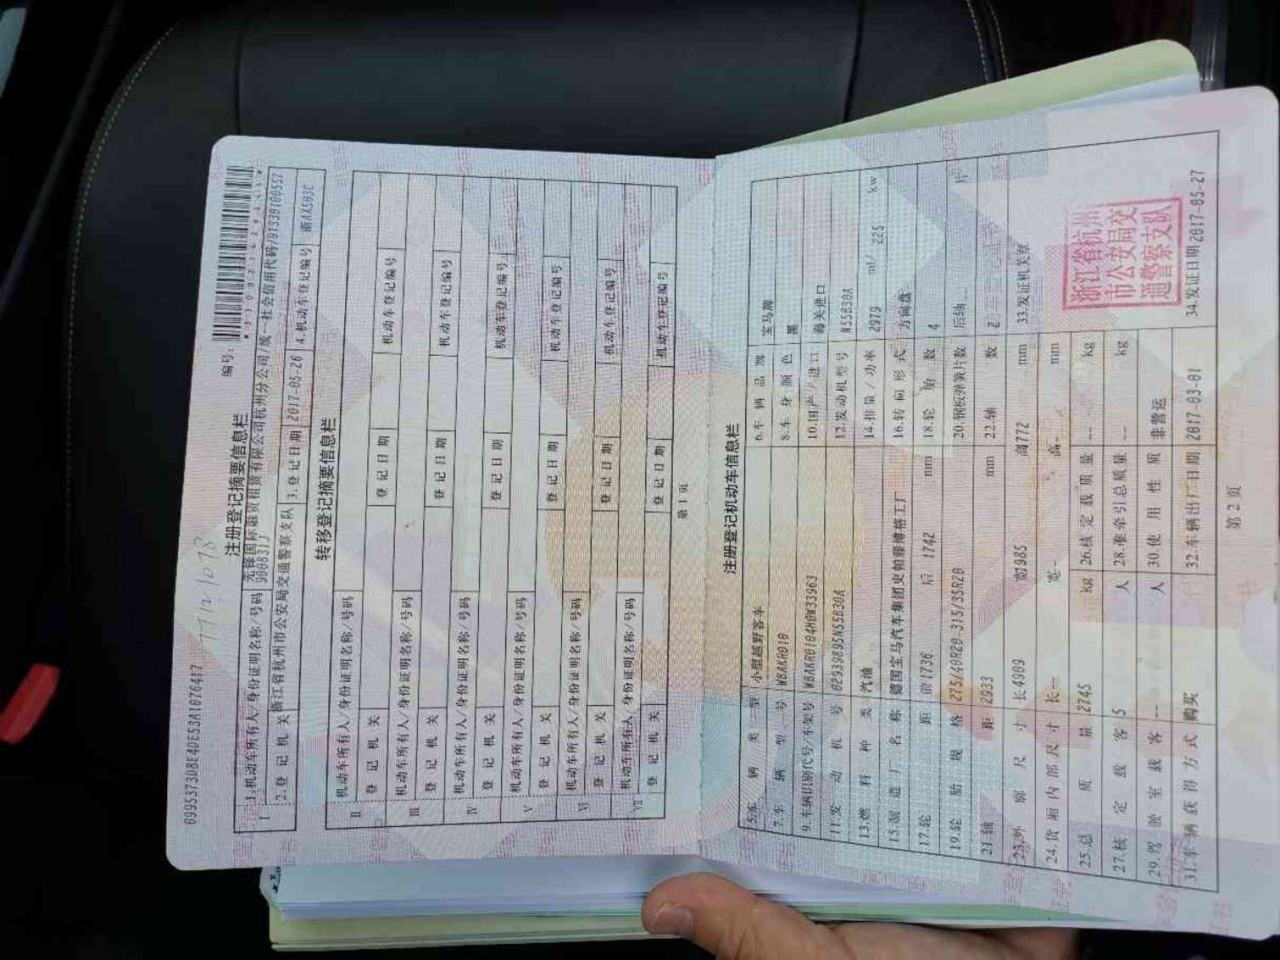 0995373D8E4DE53A1076417
77121078
注册登记摘要信息栏
编号:
Ⅰ 1.机动车所有人/身份证明名称/号码 先锋国际融资租赁有限公司杭州分公司/统一社会信用代码/
2.登记机关 浙江省杭州市公安局交通警察支队 3.登记日期 2017-05-26 4.机动车登记编号 浙AX503C
转移登记摘要信息栏
Ⅱ 机动车所有人/身份证明名称/号码
登记机关 登记日期 机动车登记编号
Ⅲ 机动车所有人/身份证明名称/号码
登记机关 登记日期 机动车登记编号
Ⅳ 机动车所有人/身份证明名称/号码
登记机关 登记日期 机动车登记编号
Ⅴ 机动车所有人/身份证明名称/号码
登记机关 登记日期 机动车登记编号
Ⅵ 机动车所有人/身份证明名称/号码
登记机关 登记日期 机动车登记编号
Ⅶ 机动车所有人/身份证明名称/号码
登记机关 登记日期 机动车登记编号
第 1 页
注册登记机动车信息栏
5.车辆类型 小型越野客车 6.车辆品牌 宝马牌
7.车辆型号 WBAKR010 8.车身颜色 黑
9.车辆识别代号/车架号 WBAKR0104H0W33963 10.国产/进口 海关进口
11.发动机号 02939895N55B30A 12.发动机型号 N55B30A
13.燃料种类 汽油 14.排量/功率 2979 ml/ 225 kw
15.制造厂名称 德国宝马汽车集团史帕滕博格工厂 16.转向形式 方向盘
17.轮距 前1736 后 1742 mm 18.轮胎数 4
19.轮胎规格 275/40R20-315/35R20 20.钢板弹簧片数 后轴-- 片
21.轴距 2933 mm 22.轴数 2
23.外廓尺寸 长4909 宽1985 高1772 mm 33.发证机关章
24.货厢内部尺寸 长-- 宽- 高- mm
25.总质量 2745 kg 26.核定载质量 -- kg
27.核定载客 5 人 28.准牵引总质量 -- kg
29.驾驶室载客 -- 人 30.使用性质 非营运
31.车辆获得方式 购买 32.车辆出厂日期 2017-03-01 34.发证日期 2017-05-27
浙江省杭州
市公安局交
通警察支队
第 2 页